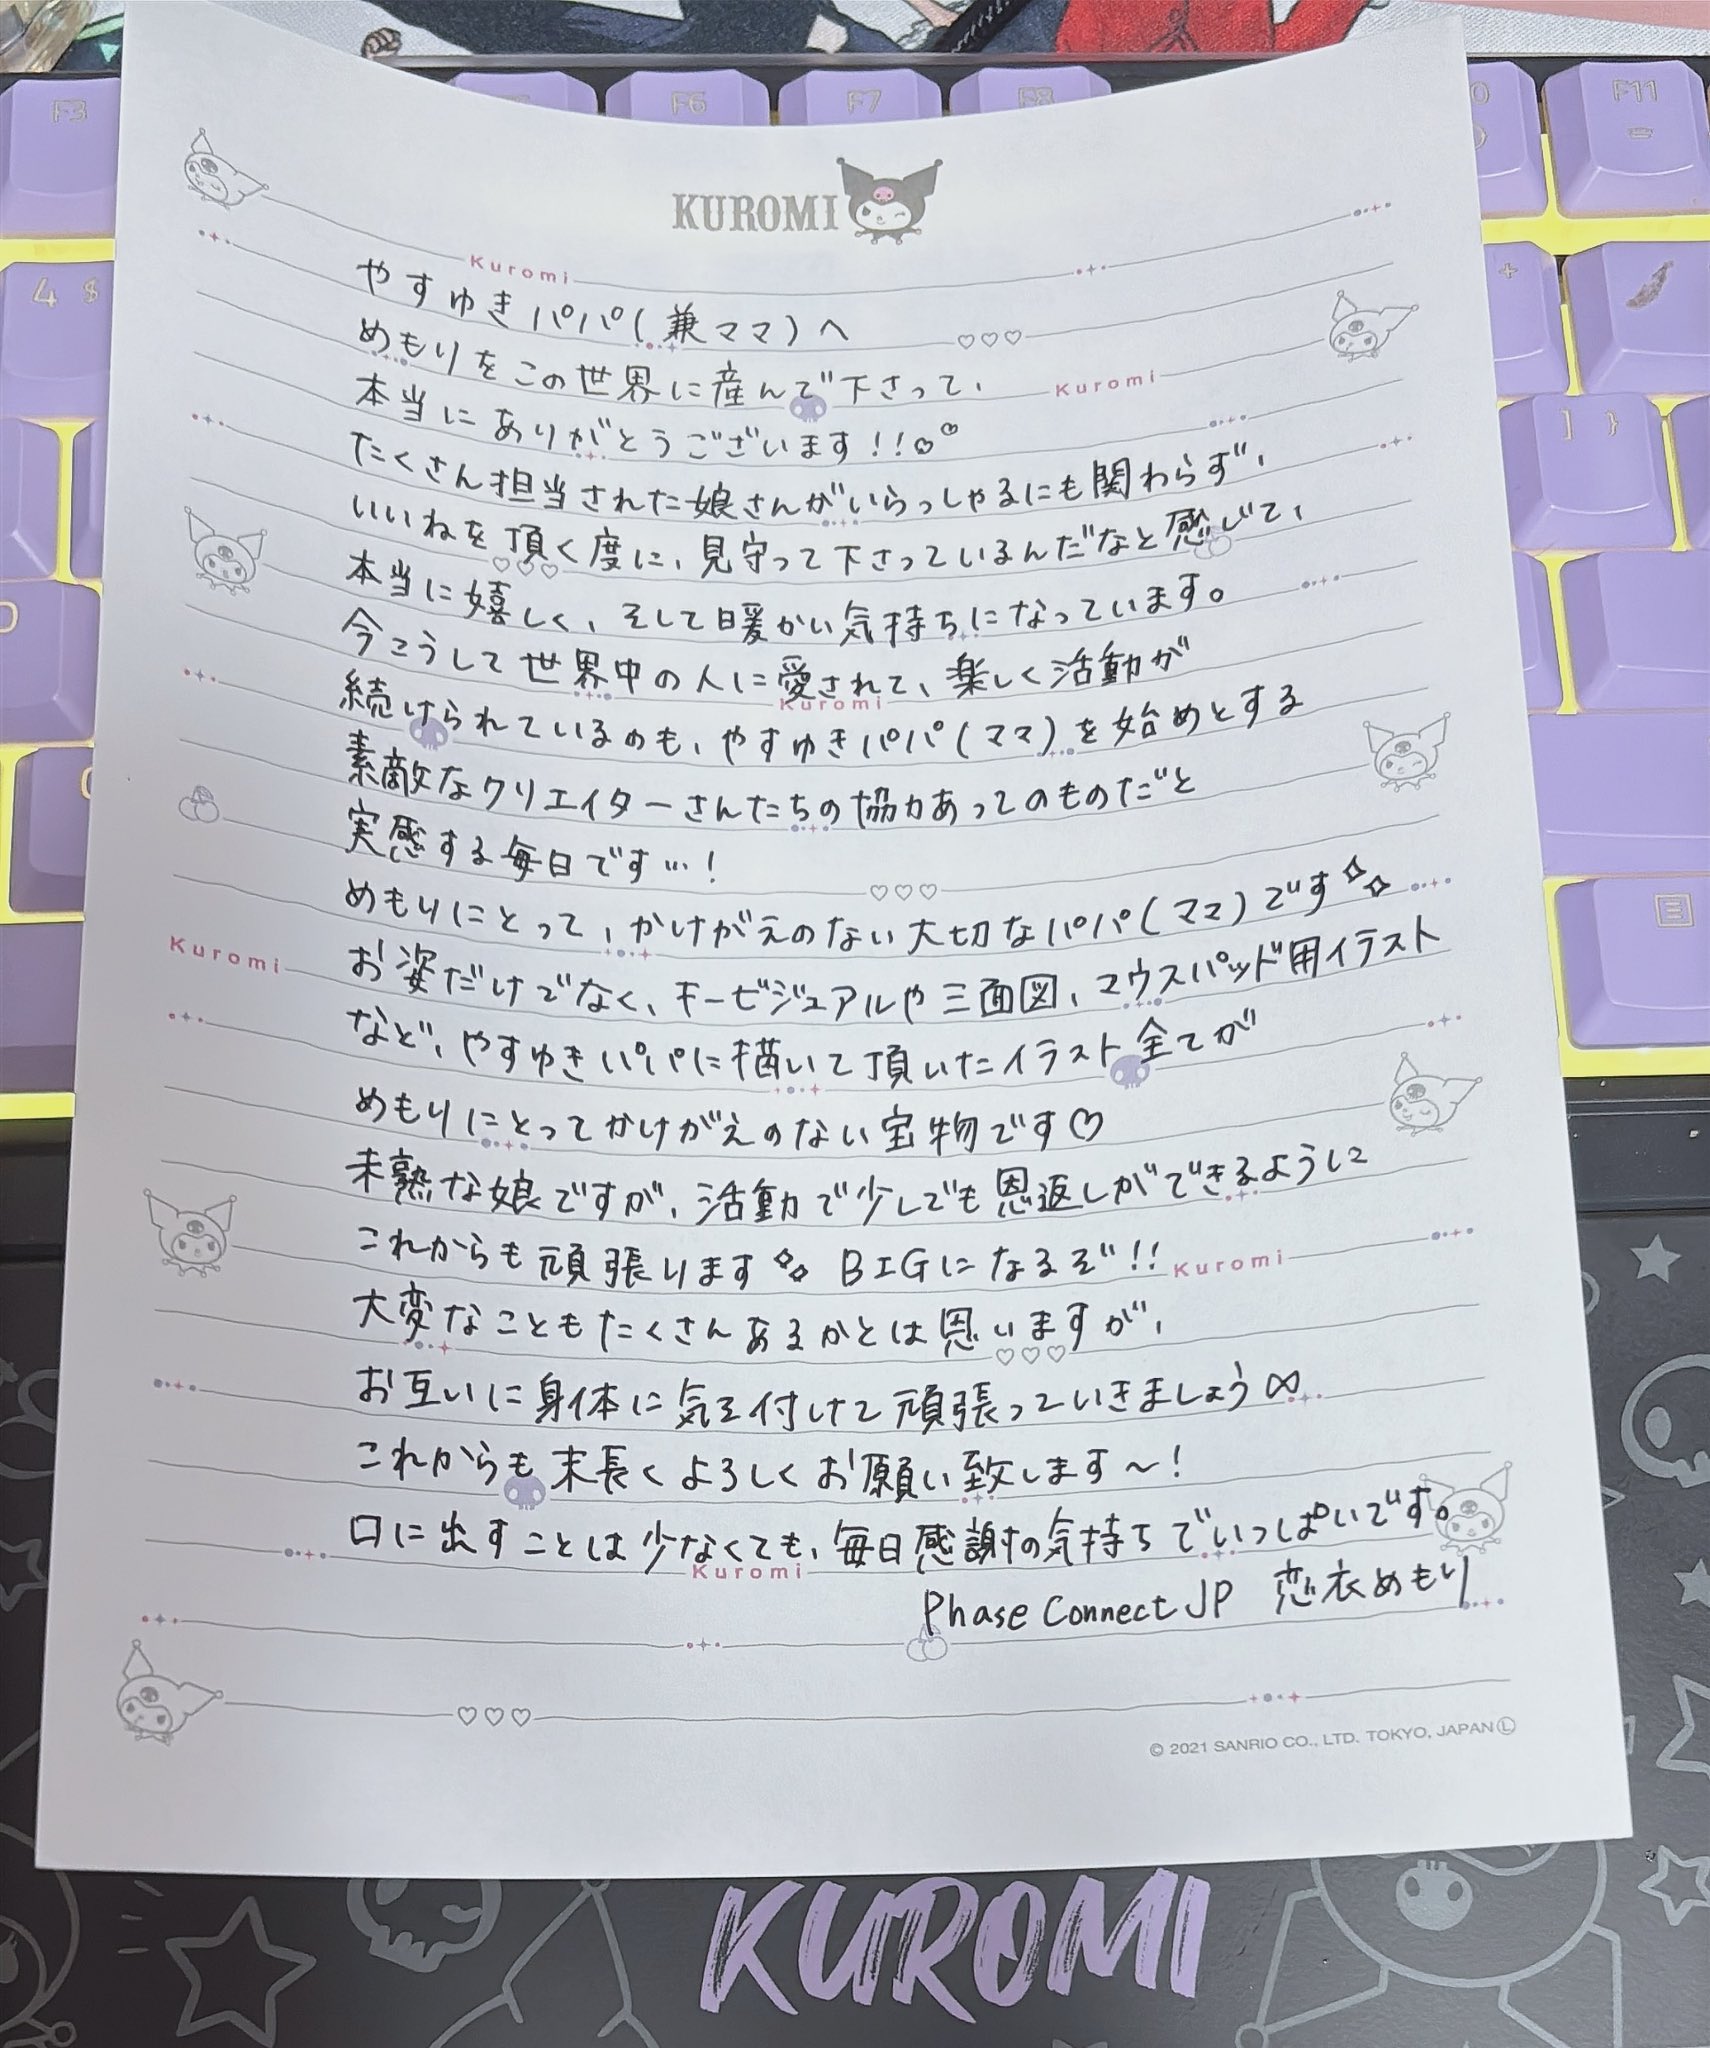 F3
F6
F7
F8
F11
4 $
] }
KUROMI
Kuromi
やすゆきパパ(兼ママ)へ
めもりをこの世界に産んで下さって、
Kuromi
本当にありがとうございます!!
たくさん担当された娘さんがいらっしゃるにも関わらず、
いいねを頂く度に、見守って下さっているんだなと感じて、
本当に嬉しく、そして暖かい気持ちになっています。
今こうして世界中の人に愛されて、楽しく活動が
Kuromi
続けられているのも、やすゆきパパ(ママ)を始めとする
素敵なクリエイターさんたちの協力あってのものだと
実感する毎日です…!
めもりにとって、かけがえのない大切なパパ(ママ)です✧✧
Kuromi
お姿だけでなく、キービジュアルや三面図、マウスパッド用イラスト
など、やすゆきパパに描いて頂いたイラスト全てが
めもりにとってかけがえのない宝物です♡
未熟な娘ですが、活動で少しでも恩返しができるように
これからも頑張ります✧✧ BIGになるぞ!!
Kuromi
大変なこともたくさんあるかとは思いますが、
お互いに身体に気を付けて頑張っていきましょう∞
これからも末長くよろしくお願い致します〜!
口に出すことは少なくても、毎日感謝の気持ちでいっぱいです。
Kuromi
Phase Connect JP 恋衣めもり
© 2021 SANRIO CO., LTD. TOKYO, JAPAN Ⓛ
KUROMI